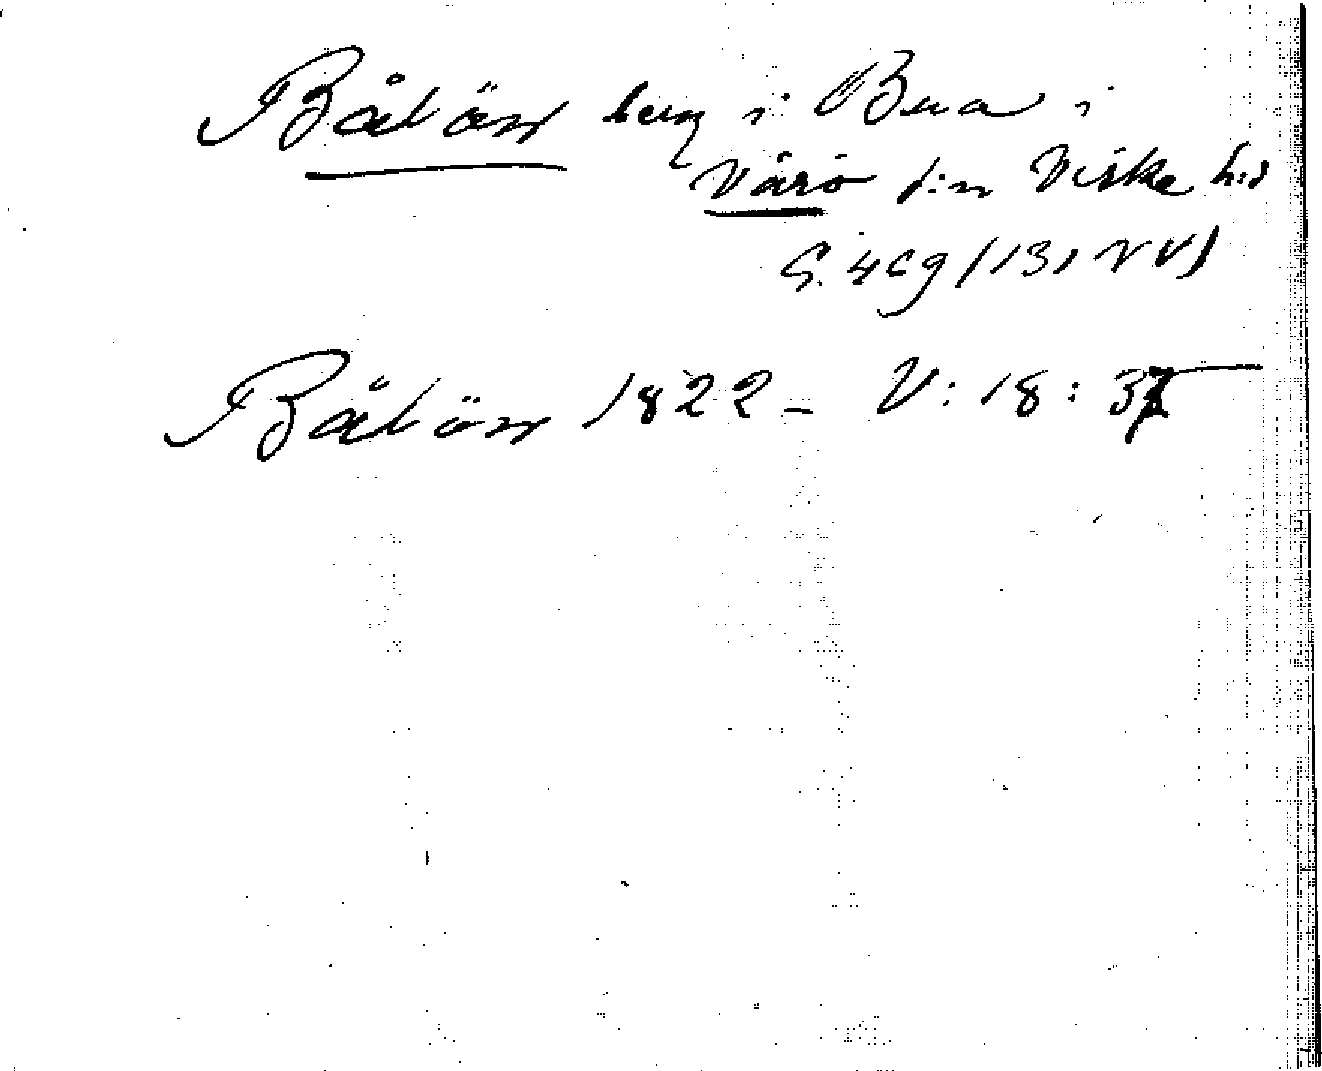 Båtön berg i Bua i
Värö s:n Viske h:d
S. 469 (131 VV)
Båtön 1822 - V: 18: 37